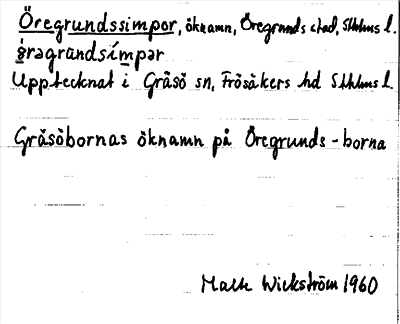 Öregrundssimpor, öknamn, Öregrunds stad, Sthlms l.
ö̀ragrundsímpər
Upptecknat i Gräsö sn, Frösåkers hd Sthlms l.
Gräsöbornas öknamn på Öregrunds-borna
Wickström 1960